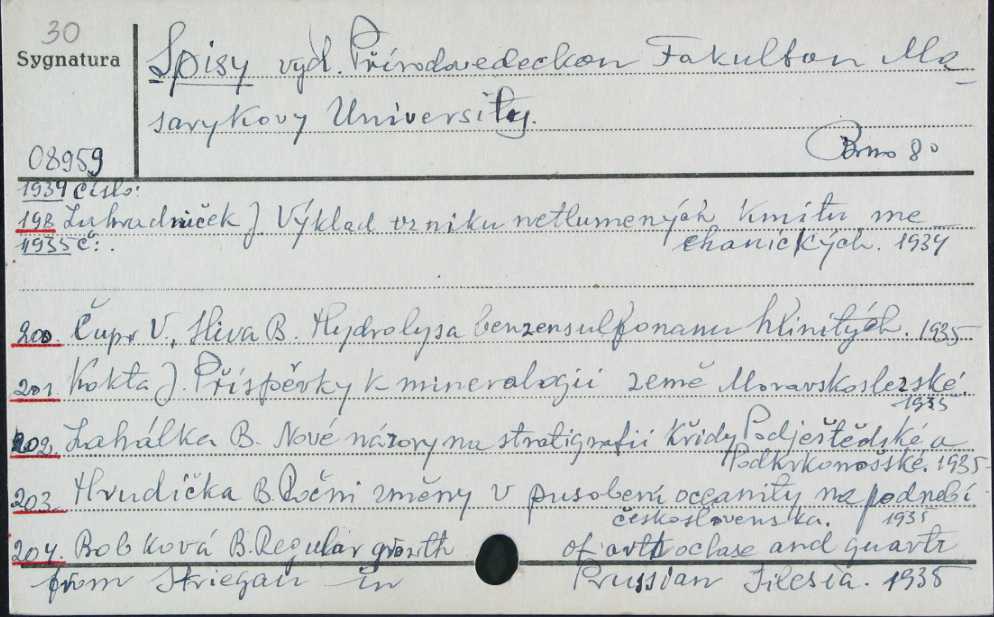 30
Sygnatura
Spisy vyd. Přírodovedeckou Fakultou Ma-
sarykovy University.
08959
Brno 8°
1934 číslo:
198 Zahradníček J. Výklad vzniku netlumených kmitu me
chanických. 1934
1935 č:.
200. Čupr V., Sliva B. Hydrolysa benzensulfonanu hlinitých. 1935
201. Kokta J. Příspěvky k mineralogii země Moravskoslezské.
1935
202. Zahálka B. Nové názory na stratigrafii křidy Podještědské a
Podkrkonošské. 1935-
203. Hrudička B. Roční změny v pusobení oceanity na podnebí
československa. 1935
204. Bobková B. Regular growth of orthoclase and quartz
from Striegau in Prussian Silesia. 1935